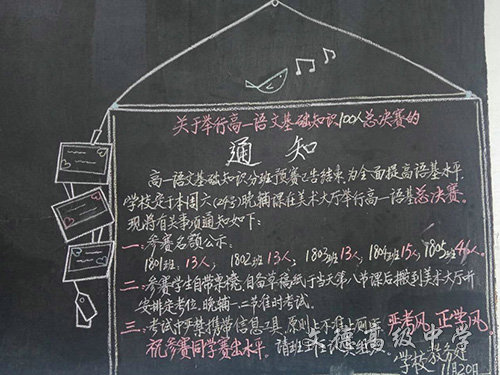 关于举行高一语文基础知识100人总决赛的
通知
高一语文基础知识分班预赛已告结束,为全面提高语基水平,
学校定于本周六(24号)晚辅课在美术大厅举行高一语基总决赛。
现将有关事项通知如下:
一:参赛名额公示:
1801班:13人; 1802班13人; 1803班13人; 1804班15人; 1805班46人。
二:参赛学生自带桌凳,自备草稿纸于当天第八节课后搬到美术大厅并
安排定考位,晚辅一二节准时考试。
三:考试中严禁携带信息工具,原则上不准上厕所 严考风,正学风,
祝参赛同学赛出水平。请班主任
学校教务处
11月20日
高级中学